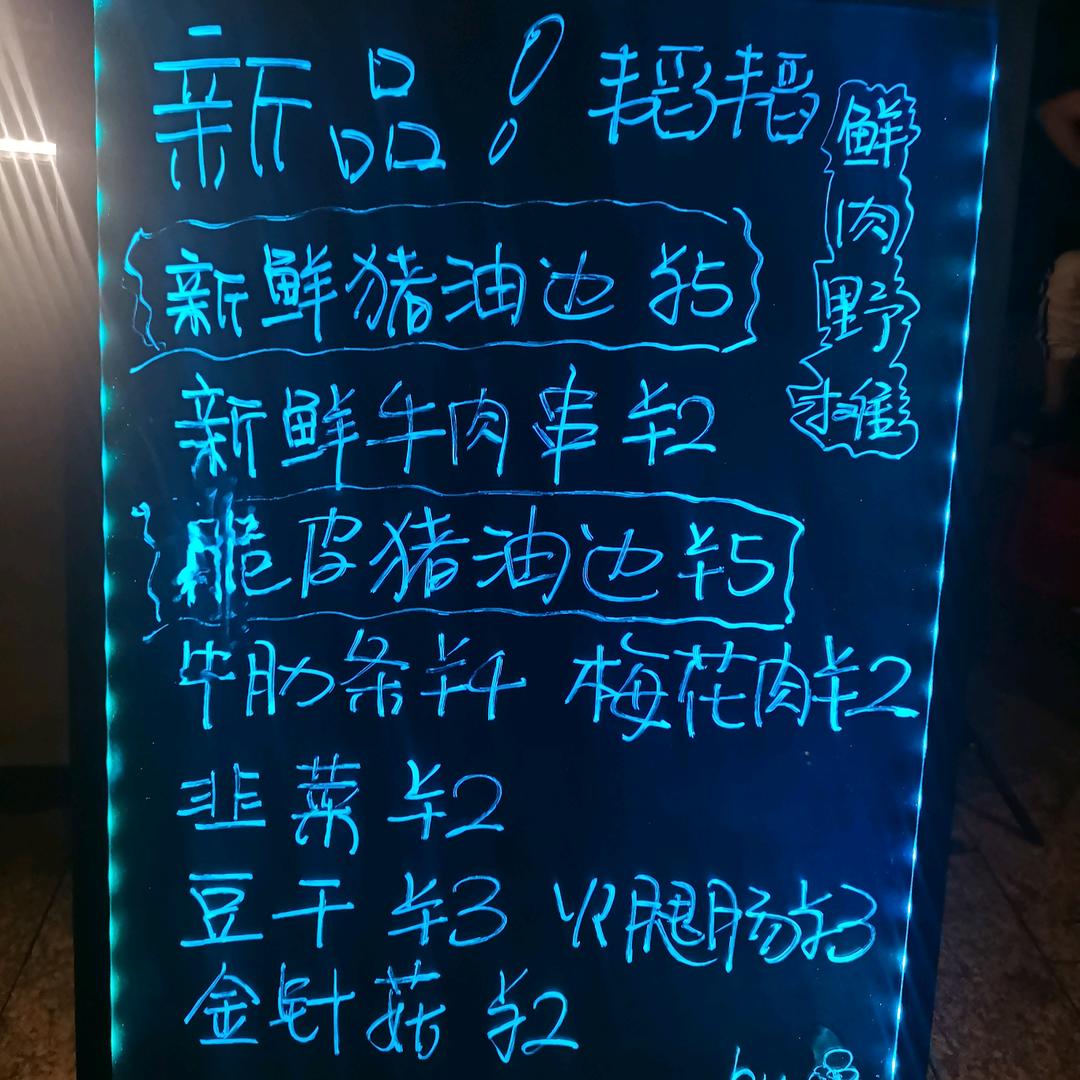 新品! 韬韬
鲜肉野摊
新鲜猪油边 ¥5
新鲜牛肉串 ¥2
脆皮猪油边 ¥5
牛肋条 ¥4 梅花肉 ¥2
韭菜 ¥2
豆干 ¥3 火腿肠 ¥3
金针菇 ¥2
by